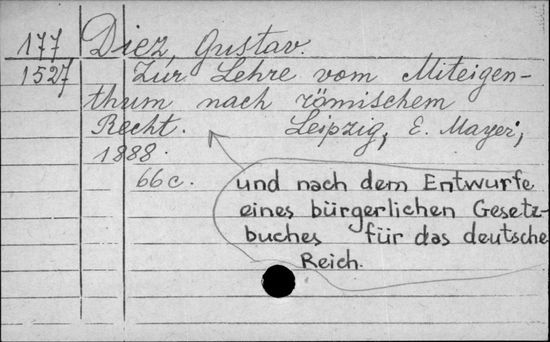 177 Diez, Gustav.
1527 Zur Lehre vom Miteigen-
thum nach römischem
Recht. Leipzig, E. Mayer,
1888.
66 c.
und nach dem Entwurfe
eines bürgerlichen Gesetz-
buches für das deutsche
Reich.